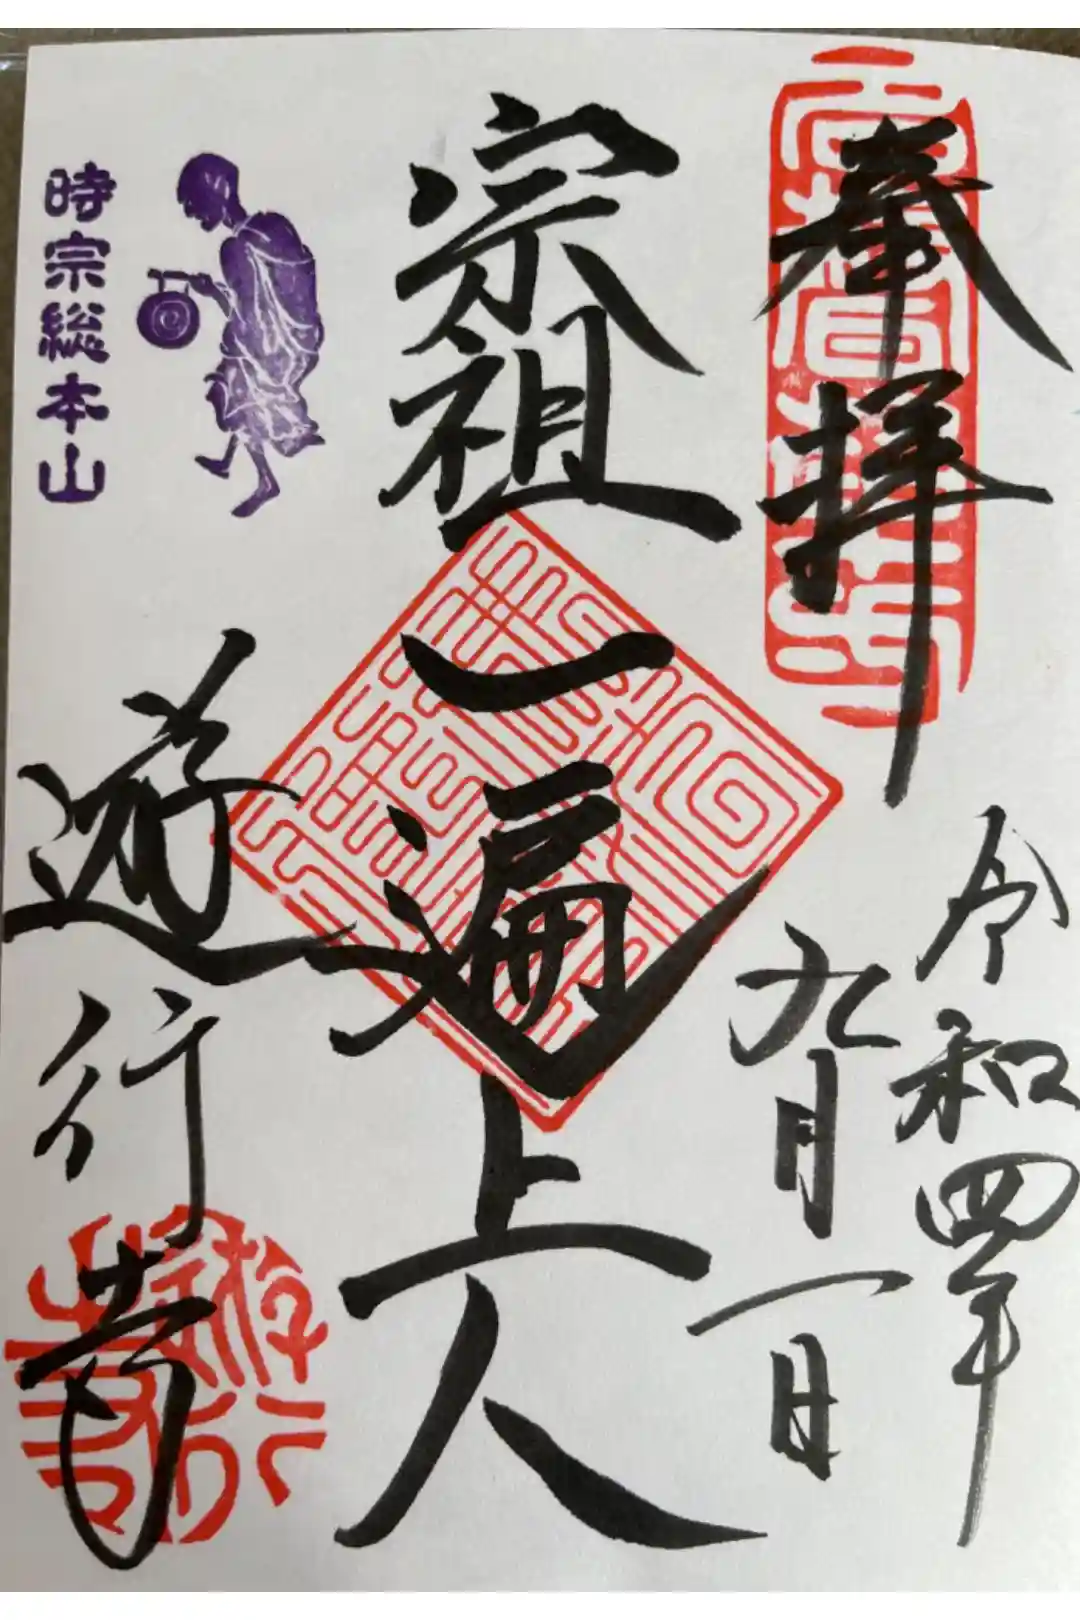 奉拝
令和四年
九月一日
宗祖一遍上人
遊行寺
時宗総本山